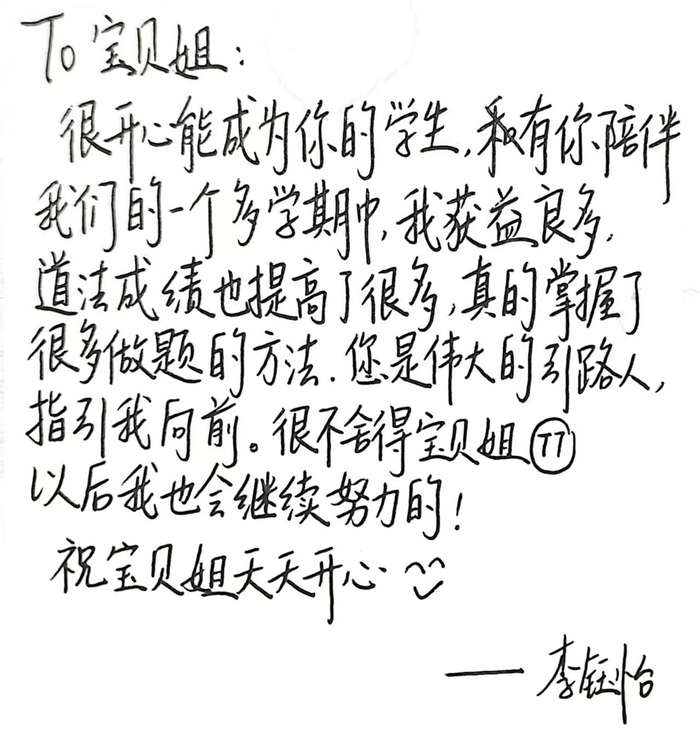 To 宝贝姐:
很开心能成为你的学生,和有你陪伴
我们的一个多学期中,我获益良多.
道法成绩也提高了很多,真的掌握了
很多做题的方法.您是伟大的引路人,
指引我向前。很不舍得宝贝姐 TT
以后我也会继续努力的!
祝宝贝姐天天开心
—— 李钰怡